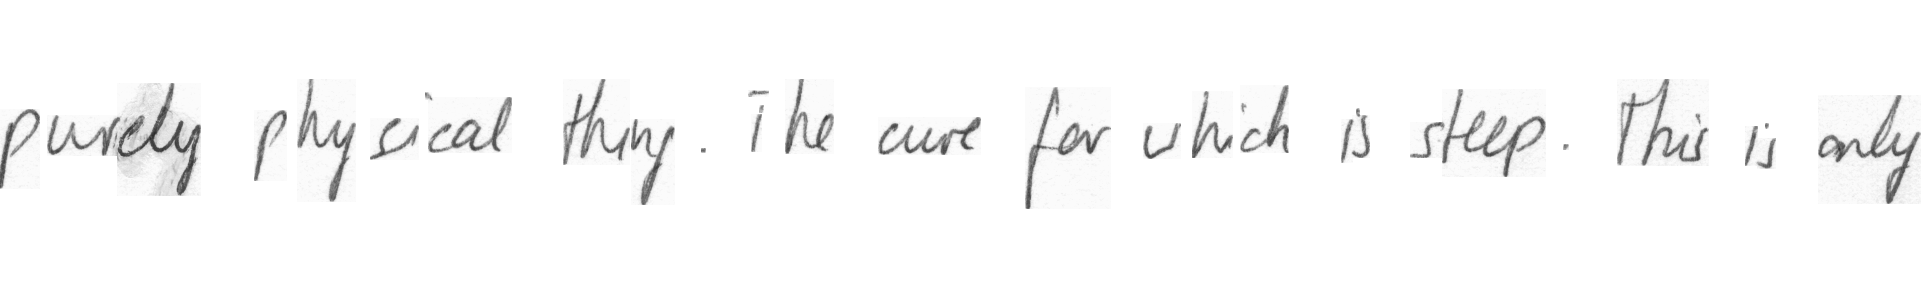 purely physical thing. The cure for which is steep. This is only